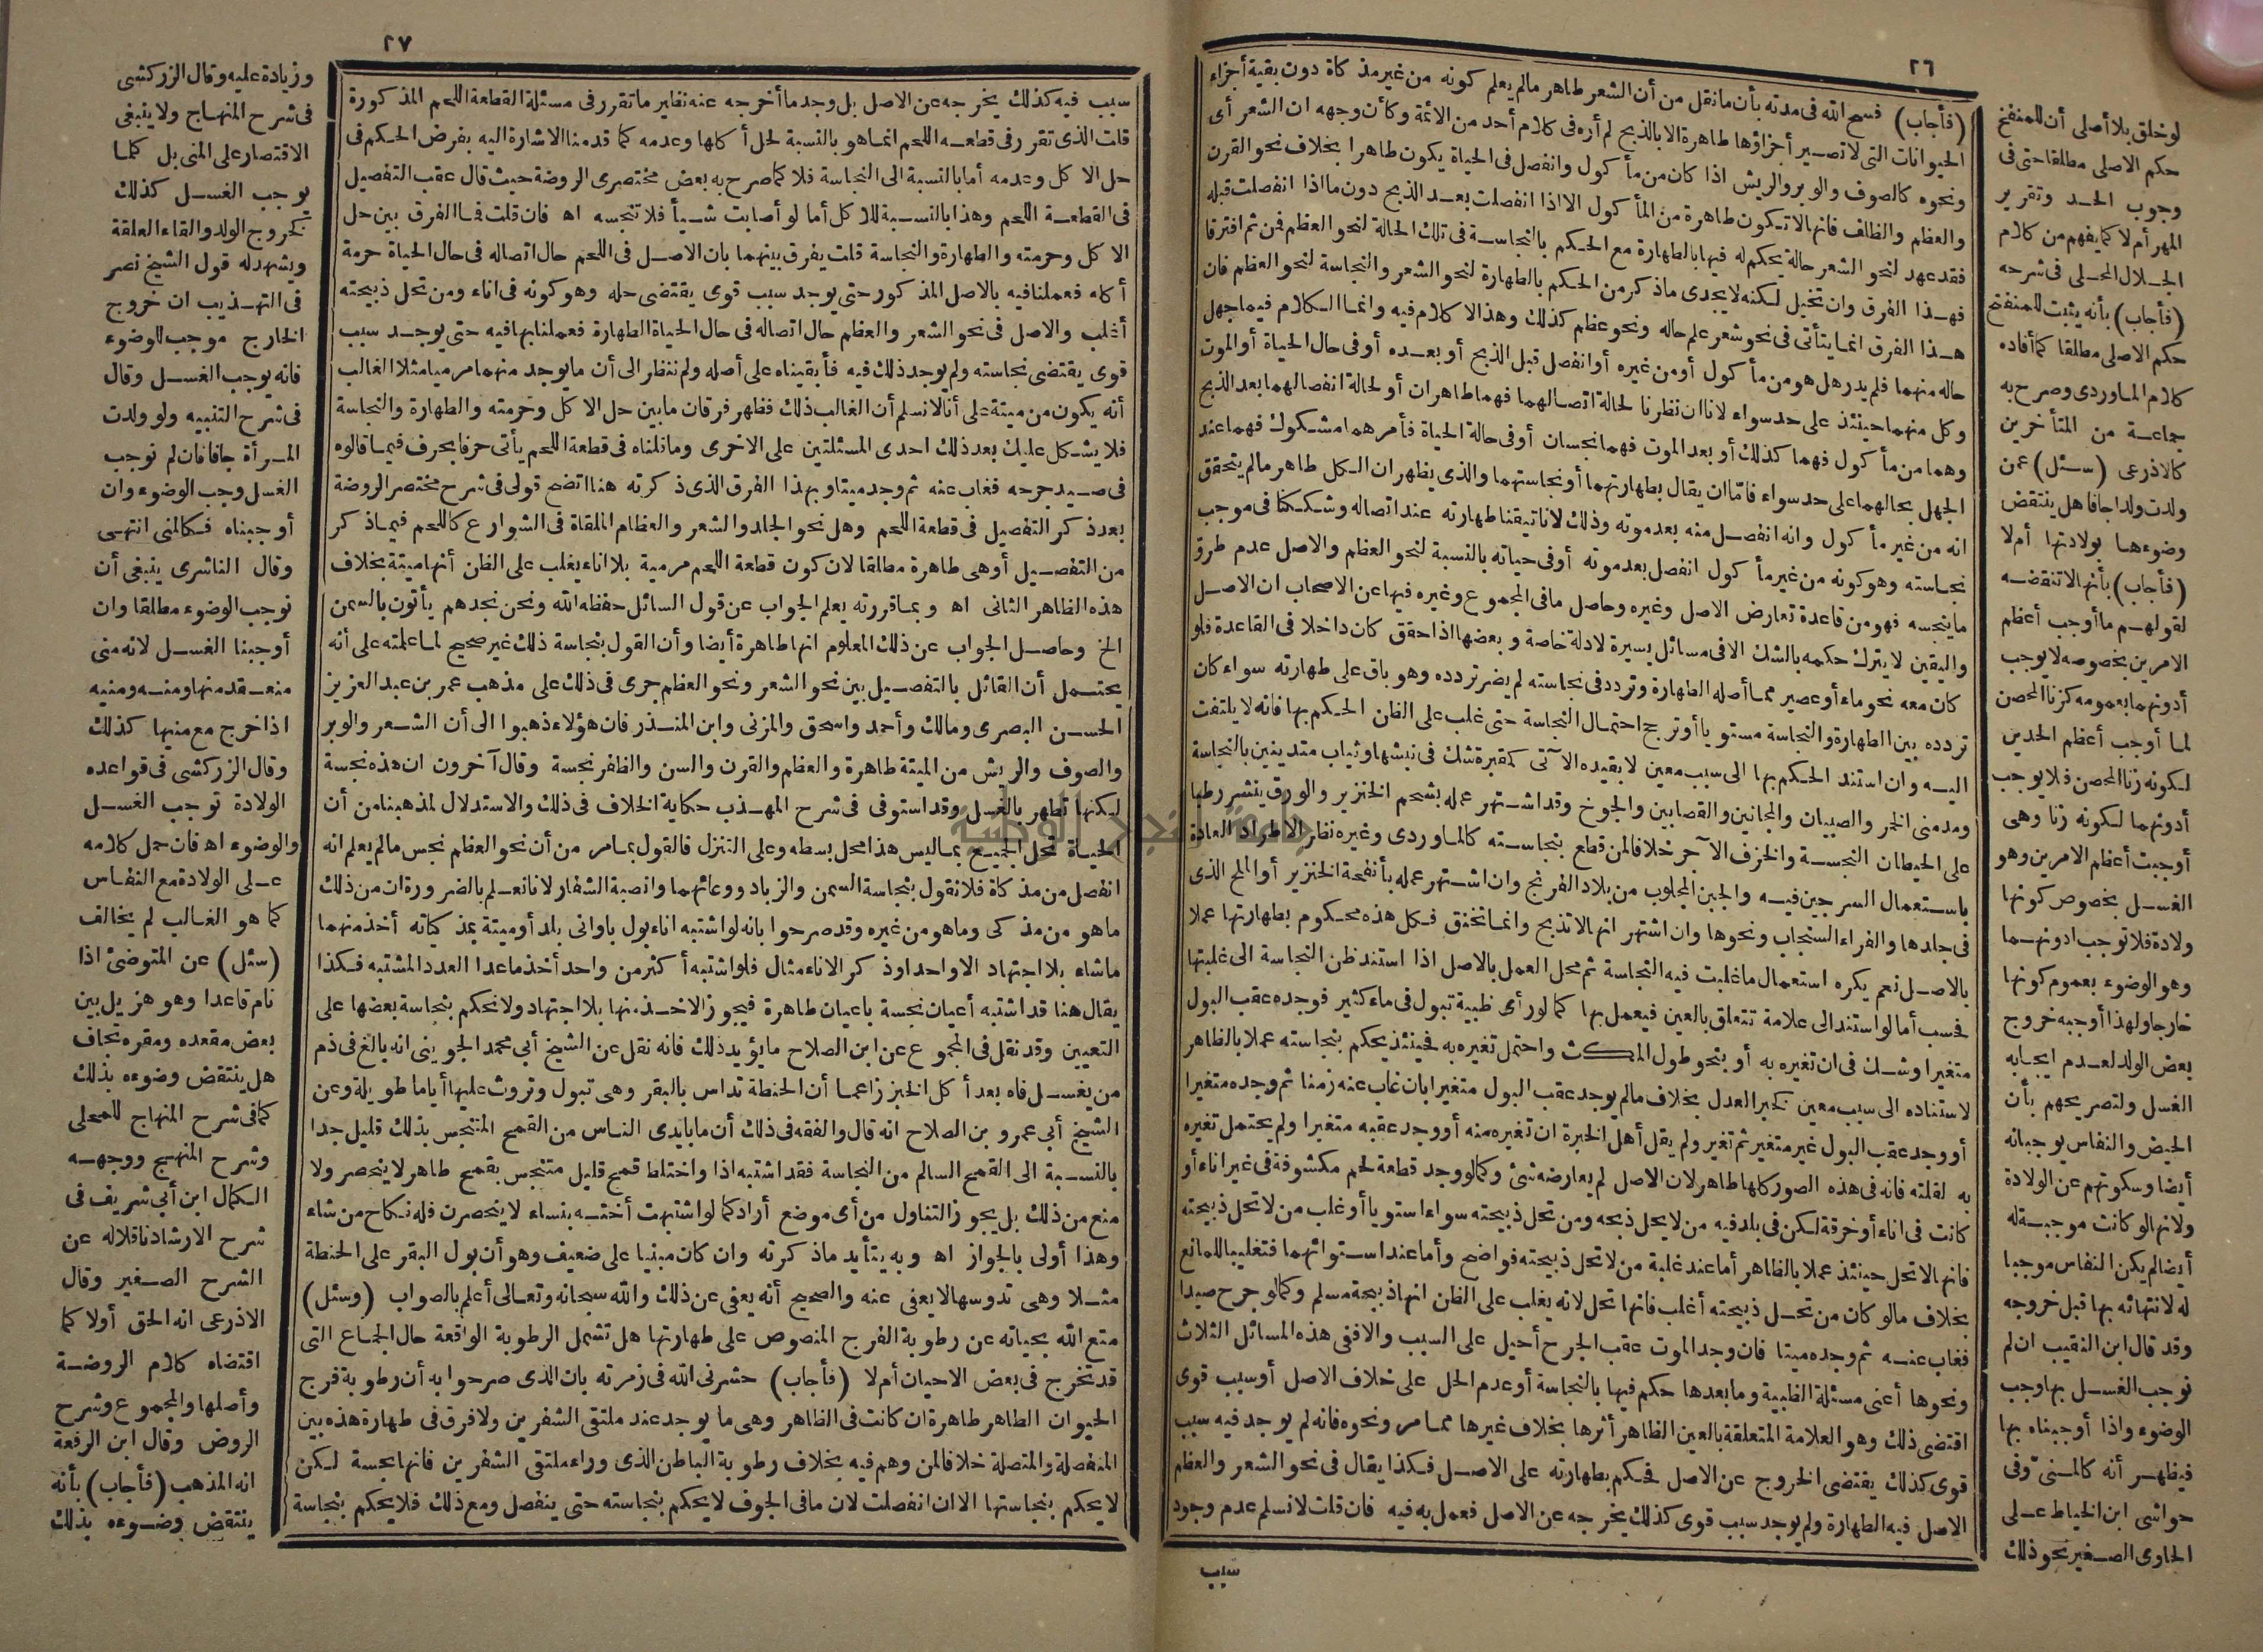 ٢٦
(فأجاب) فسح الله فى مدته بأن ما نقل من أن الشعر طاهر مالم يعلم كونه من غير مذكاة دون بقية أجزاء
الحيوانات التى لا تصير أجزاؤها طاهرة الا بالذبح لم أره فى كلام أحد من الائمة وكأن وجهه ان الشعر أى
ونحوه كالصوف والوبر والريش اذا كان من مأكول وانفصل فى الحياة يكون طاهرا بخلاف نحو القرن
والعظم والظلف فانها لا تكون طاهرة من المأكول الا اذا انفصلت بعد الذبح دون ما اذا انفصلت قبله
فقد عهد لنحو الشعر حالة يحكم له فيها بالطهارة مع الحكم بالنجاسة فى تلك الحالة لنحو العظم فمن ثم افترقا
فهذا الفرق وان تخيل لكنه لا يجدى ماذكر من الحكم بالطهارة لنحو الشعر والنجاسة لنحو العظم فان
هذا الفرق انما يتأتى فى نحو شعر علم حاله ونحو عظم كذلك وهذا لا كلام فيه وانما الكلام فيما جهل
حاله منهما فلم يدر هل هو من مأكول أو من غيره أو انفصل قبل الذبح أو بعده أو فى حال الحياة أو الموت
وكل منهما حينئذ على حد سواء لانا ان نظرنا لحالة اتصالهما فهما طاهران أو لحالة انفصالهما بعد الذبح
وهما من مأكول فهما كذلك أو بعد الموت فهما نجسان أو فى حالة الحياة فأمرهما مشكوك فهما عند
الجهل بحالهما على حد سواء فامّا ان يقال بطهارتهما أو نجاستهما والذى يظهر ان الكل طاهر مالم يتحقق
انه من غير مأكول وانه انفصل منه بعد موته وذلك لانا تيقنا طهارته عند اتصاله وشككنا فى موجب
نجاسته وهو كونه من غير مأكول انفصل بعد موته أو فى حياته بالنسبة لنحو العظم والاصل عدم طرق
ما ينجسه فهو من قاعدة تعارض الاصل وغيره وحاصل مافى المجموع وغيره فيها عن الاصحاب ان الاصل
واليقين لا يترك حكمه بالشك الا فى مسائل يسيرة لادلة خاصة وبعضها اذا حقق كان داخلا فى القاعدة فلو
كان معه نحو ماء أو عصير مما أصله الطهارة وتردد فى نجاسته لم يضر تردده وهو باق على طهارته سواء كان
تردده بين الطهارة والنجاسة مستويا أو ترجح احتمال النجاسة حتى غلب على الظن الحكم بها فانه لا يلتفت
اليه وان استند الحكم بها الى سبب معين لا بقيده الآتى كمقبرة شك فى نبشها وثياب متدينين بالنجاسة
ومدمنى الخمر والصبيان والمجانين والقصابين والجوخ وقد اشتهر عمله بشحم الخنزير والورق ينشر رطبا
على الحيطان النجسة والخزف الآجر خلافا لمن قطع بنجاسته كالماوردى وغيره نظرا لاطراد العادة
باستعمال السرجين فيه والجبن المجلوب من بلاد الفرنج وان اشتهر عمله بأنفحة الخنزير أو الملح الذى
فى جلدها والفراء السنجاب ونحوها وان اشتهر انها لا تذبح وانما تخنق فكل هذه محكوم بطهارتها عملا
بالاصل نعم يكره استعمال ما غلبت فيه النجاسة ثم محل العمل بالاصل اذا استند ظن النجاسة الى غلبتها
فحسب أما لو استند الى علامة تتعلق بالعين فيعمل بها كما لو رأى ظبية تبول فى ماء كثير فوجده عقب البول
متغيرا وشك فى ان تغيره به أو بنحو طول المكث واحتمل تغيره به فحينئذ يحكم بنجاسته عملا بالظاهر
لاستناده الى سبب معين كخبر العدل بخلاف مالم يوجد عقب البول متغيرا بان غاب عنه زمنا ثم وجده متغيرا
أو وجد عقب البول غير متغير ثم تغير ولم يقل أهل الخبرة ان تغيره منه أو وجد عقبه متغيرا ولم يحتمل تغيره
به لقلته فانه فى هذه الصور كلها طاهر لان الاصل لم يعارضه شئ وكما لو وجد قطعة لحم مكشوفة فى غير اناء أو
كانت فى اناء أو خرقة لكن فى بلد فيه من لا يحل ذبحه ومن تحل ذبيحته سواء استويا أو غلب من لا تحل ذبيحته
فانها لا تحل حينئذ عملا بالظاهر أما عند غلبة من لا تحل ذبيحته فواضح وأما عند استوائهما فتغليبا للمانع
بخلاف مالو كان من تحل ذبيحته أغلب فانها تحل لانه يغلب على الظن انها ذبيحة مسلم وكما لو جرح صيدا
فغاب عنه ثم وجده ميتا فان وجد الموت عقب الجرح أحيل على السبب والا ففى هذه المسائل الثلاث
ونحوها أعنى مسئلة الظبية وما بعدها حكم فيها بالنجاسة أو عدم الحل على خلاف الاصل أو سبب قوى
اقتضى ذلك وهو العلامة المتعلقة بالعين الظاهر أثرها بخلاف غيرها مما مر ونحوه فانه لم يوجد فيه سبب
قوى كذلك يقتضى الخروج عن الاصل فحكم بطهارته على الاصل فكذا يقال فى نحو الشعر والعظم
الاصل فيه الطهارة ولم يوجد سبب قوى كذلك يخرجه عن الاصل فعمل به فيه فان قلت لا نسلم عدم وجود
سبب
لو خلق بلا أصلى أن للمنفتح
حكم الاصلى مطلقا حتى فى
وجوب الحد وتقرير
المهر أم لا كما يفهم من كلام
الجلال المحلى فى شرحه
(فأجاب) بأنه يثبت للمنفتح
حكم الاصلى مطلقا كما أفاده
كلام الماوردى وصرح به
جماعة من المتأخرين
كالاذرعى (سئل) عمن
ولدت ولدا جافا هل ينتقض
وضوءها بولادتها أم لا
(فأجاب) بأنها لا تنقضه
لقولهم ما أوجب أعظم
الامرين بخصوصه لا يوجب
أدونهما بعمومه كزنا المحصن
لما أوجب أعظم الحدين
لكونه زنا المحصن فلا يوجب
أدونهما لكونه زنا وهى
أوجبت أعظم الامرين وهو
الغسل بخصوص كونها
ولادة فلا توجب ادونهما
وهو الوضوء بعموم كونها
خارجا ولهذا أوجبه خروج
بعض الولد لعدم ايجابه
الغسل ولتصريحهم بأن
الحيض والنفاس يوجبانه
أيضا وسكوتهم عن الولادة
ولانها لو كانت موجبة له
أيضا لم يكن النفاس موجبا
له لانتهائه بها قبل خروجه
وقد قال ابن النقيب ان لم
نوجب الغسل بها وجب
الوضوء واذا أوجبناه بها
فيظهر أنه كالمنىّ وفى
حواشى ابن الخياط على
الحاوى الصغير نحو ذلك
٢٧
سبب فيه كذلك يخرجه عن الاصل بل وجد ما أخرجه عنه نظير ما تقرر فى مسئلة القطعة اللحم المذكورة
قلت الذى تقرر فى قطعة اللحم انما هو بالنسبة لحل أكلها وعدمه كما قدمنا الاشارة اليه بفرض الحكم فى
حل الاكل وعدمه أما بالنسبة الى النجاسة فلا كما صرح به بعض مختصرى الروضة حيث قال عقب التفصيل
فى القطعة اللحم وهذا بالنسبة للاكل أما لو أصابت شيأ فلا تنجسه اه فان قلت فما الفرق بين حل
الاكل وحرمته والطهارة والنجاسة قلت يفرق بينهما بان الاصل فى اللحم حال اتصاله فى حال الحياة حرمة
أكله فعملنا فيه بالاصل المذكور حتى يوجد سبب قوى يقتضى حله وهو كونه فى اناء ومن تحل ذبيحته
أغلب والاصل فى نحو الشعر والعظم حال اتصاله فى حال الحياة الطهارة فعملنا بها فيه حتى يوجد سبب
قوى يقتضى نجاسته ولم يوجد ذلك فيه فأبقيناه على أصله ولم ننظر الى أن ما يوجد منهما مرميا مثلا الغالب
أنه يكون من ميتة على أنا لا نسلم أن الغالب ذلك فظهر فرقان ما بين حل الاكل وحرمته والطهارة والنجاسة
فلا يشكل عليك بعد ذلك احدى المسئلتين على الاخرى وما قلناه فى قطعة اللحم يأتى حرفا بحرف فيما قالوه
فى صيد جرحه فغاب عنه ثم وجد ميتا وبهذا الفرق الذى ذكرته هنا اتضح قولى فى شرح مختصر الروضة
بعد ذكر التفصيل فى قطعة اللحم وهل نحو الجلد والشعر والعظام الملقاة فى الشوارع كاللحم فيما ذكر
من التفصيل أو هى طاهرة مطلقا لان كون قطعة اللحم مرمية بلا اناء يغلب على الظن أنها ميتة بخلاف
هذه الظاهر الثانى اه وبما قررته يعلم الجواب عن قول السائل حفظه الله ونحن نجدهم يأتون بالسمن
الخ وحاصل الجواب عن ذلك المعلوم انها طاهرة أيضا وأن القول بنجاسة ذلك غير صحيح لما علمته على أنه
يحتمل أن القائل بالتفصيل بين نحو الشعر ونحو العظم جرى فى ذلك على مذهب عمر بن عبد العزيز
الحسن البصرى ومالك وأحمد واسحق والمزنى وابن المنذر فان هؤلاء ذهبوا الى أن الشعر والوبر
والصوف والريش من الميتة طاهرة والعظم والقرن والسن والظفر نجسة وقال آخرون ان هذه نجسة
لكنها تطهر بالغسل وقد استوفى فى شرح المهذب حكاية الخلاف فى ذلك والاستدلال لمذهبنا من أن
الحياة تحل الجميع بما ليس هذا محل بسطه وعلى التنزل فالقول بما مر من أن نحو العظم نجس مالم يعلم انه
انفصل من مذكاة فلا نقول بنجاسة السمن والزباد ووعائهما وانصبة الشفار لانا نعلم بالضرورة ان من ذلك
ما هو من مذكى وما هو من غيره وقد صرحوا بانه لو اشتبه اناء بول باوانى بلد أو ميتة بمذكياته أخذ منهما
ماشاء بلا اجتهاد الا واحدا وذكر الاناء مثال فلو اشتبه أكثر من واحد أخذ ماعدا العدد المشتبه فكذا
يقال هنا قد اشتبه أعيان نجسة باعيان طاهرة فيجوز الاخذ منها بلا اجتهاد ولا نحكم بنجاسة بعضها على
التعيين وقد نقل فى المجموع عن ابن الصلاح ما يؤيد ذلك فانه نقل عن الشيخ أبى محمد الجوينى انه بالغ فى ذم
من يغسل فاه بعد أكل الخبز زاعما أن الحنطة تداس بالبقر وهى تبول وتروث عليها أياما طويلة وعن
الشيخ أبى عمرو بن الصلاح انه قال والفقه فى ذلك أن ما بايدى الناس من القمح المتنجس بذلك قليل جدا
بالنسبة الى القمح السالم من النجاسة فقد اشتبه اذا واختلط قمح قليل متنجس بقمح طاهر لا ينحصر ولا
منع من ذلك بل يجوز التناول من أى موضع أراد كما لو اشتبهت أخته بنساء لا ينحصرن فله نكاح من شاء
وهذا أولى بالجواز اه وبه يتأيد ماذكرته وان كان مبنيا على ضعيف وهو أن بول البقر على الحنطة
مثلا وهى تدوسها لا يعفى عنه والصحيح أنه يعفى عن ذلك والله سبحانه وتعالى أعلم بالصواب (وسئل)
متع الله بحياته عن رطوبة الفرج المنصوص على طهارتها هل تشمل الرطوبة الواقعة حال الجماع التى
قد تخرج فى بعض الاحيان أم لا (فأجاب) حشرنى الله فى زمرته بان الذى صرحوا به أن رطوبة فرج
الحيوان الطاهر طاهرة ان كانت فى الظاهر وهى ما يوجد عند ملتقى الشفرين ولا فرق فى طهارة هذه بين
المنفصلة والمتصلة خلافا لمن وهم فيه بخلاف رطوبة الباطن الذى وراء ملتقى الشفرين فانها نجسة لكن
لا يحكم بنجاستها الا ان انفصلت لان ما فى الجوف لا يحكم بنجاسته حتى ينفصل ومع ذلك فلا يحكم بنجاسة
وزيادة عليه وقال الزركشى
فى شرح المنهاج ولا ينبغى
الاقتصار على المنى بل كلما
يوجب الغسل كذلك
كخروج الولد والقاء العلقة
ويشهد له قول الشيخ نصر
فى التهذيب ان خروج
الخارج موجب للوضوء
فانه يوجب الغسل وقال
فى شرح التنبيه ولو ولدت
المرأة جافا فان لم نوجب
الغسل وجب الوضوء وان
أوجبناه فكالمنى انتهى
وقال الناشرى ينبغى أن
نوجب الوضوء مطلقا وان
أوجبنا الغسل لانه منى
منعقد منها ومنه ومنيه
اذا خرج مع منيها كذلك
وقال الزركشى فى قواعده
الولادة توجب الغسل
والوضوء اه فان حمل كلامه
على الولادة مع النفاس
كما هو الغالب لم يخالف
(سئل) عن المتوضئ اذا
نام قاعدا وهو هزيل بين
بعض مقعده ومقره تجاف
هل ينتقض وضوءه بذلك
كما فى شرح المنهاج للمحلى
وشرح المنهج ووجهه
الكمال ابن أبى شريف فى
شرح الارشاد ناقلا له عن
الشرح الصغير وقال
الاذرعى انه الحق أولا كما
اقتضاه كلام الروضة
وأصلها والمجموع وشرح
الروض وقال ابن الرفعة
انه المذهب (فأجاب) بأنه
ينتقض وضوءه بذلك